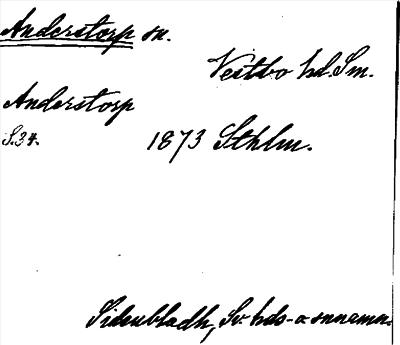 Anderstorp sn.
Vestbo hd. Sm.
Anderstorp
S. 34. 1873 Sthlm.
Sidenbladh, Sv. hds- o. snnamn.